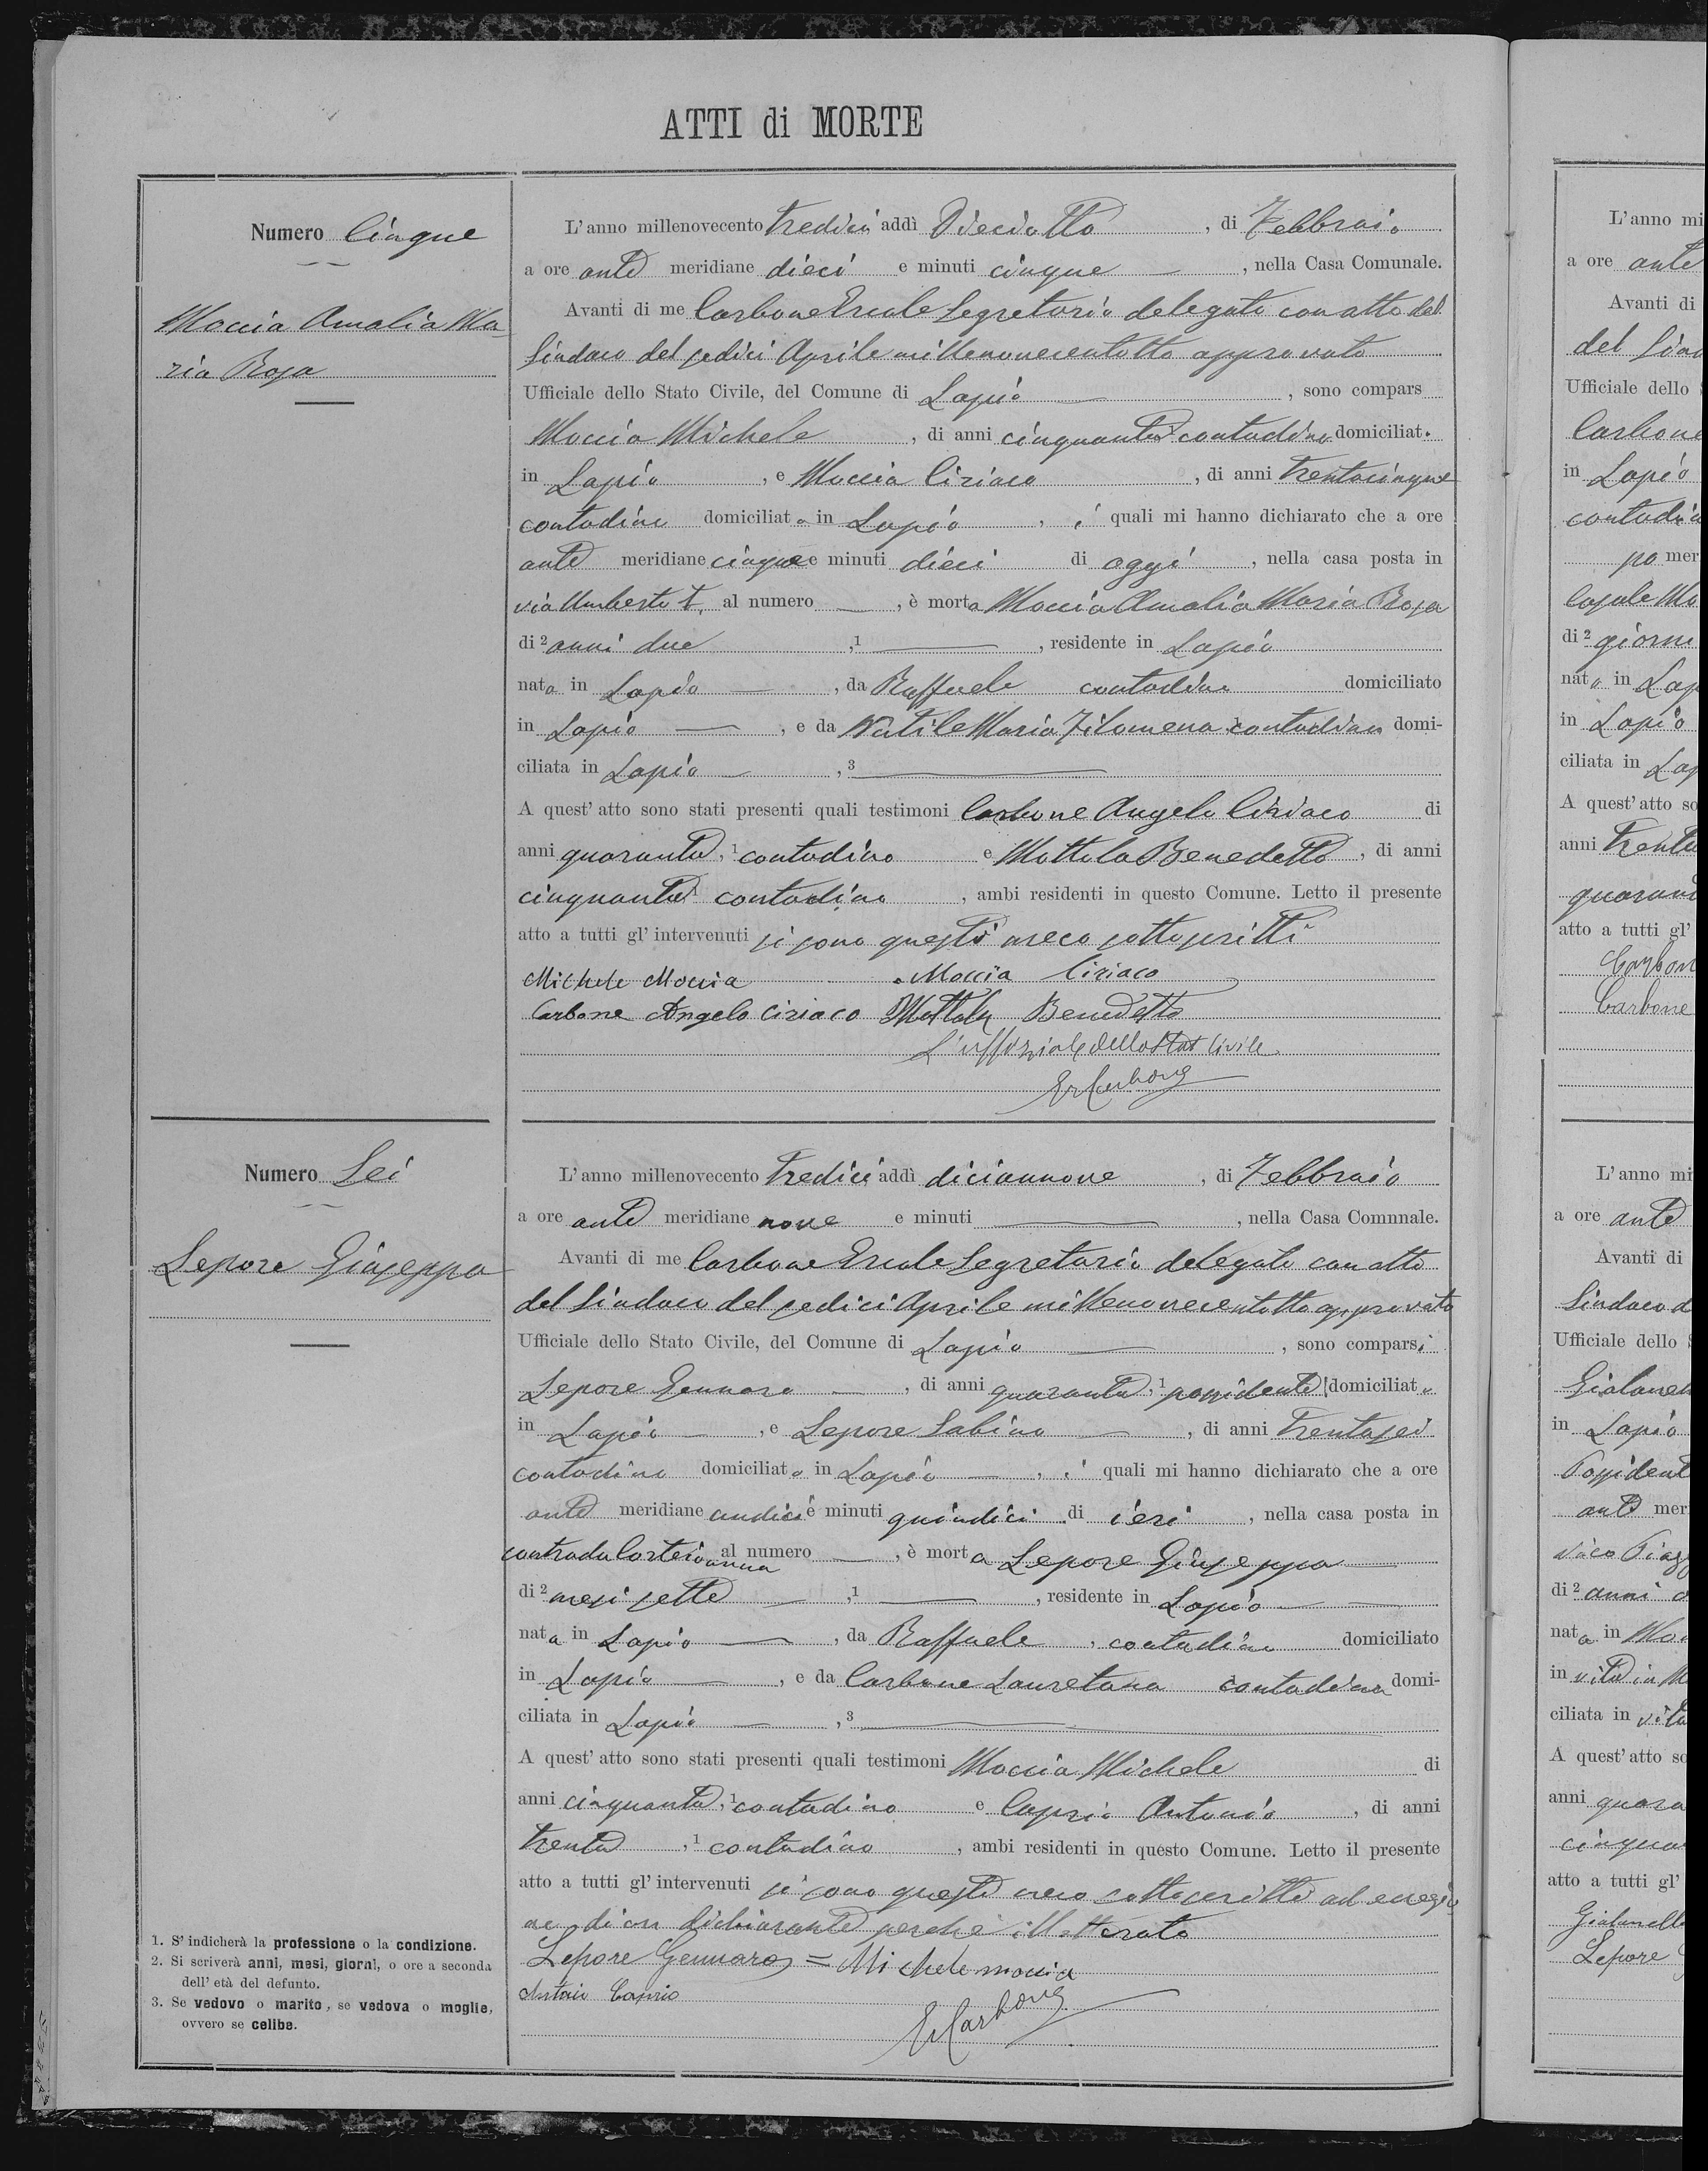 ATTI di MORTE
Numero Cinque
Moccia Amalia Ma-
ria Rosa
L'anno millenovecento tredici addì Dieciotto, di Febbraio
a ore ante meridiane dieci e minuti cinque, nella Casa Comunale.
Avanti di me Carbone Ercole Segretario delegato con atto del
Sindaco del sedici Aprile millenovecentotto approvato
Ufficiale dello Stato Civile, del Comune di Lapio, sono compars
Moccia Michele, di anni cinquanta contadino domiciliato
in Lapio, e Moccia Ciriaco, di anni trentacinque
contadino domiciliato in Lapio, i quali mi hanno dichiarato che a ore
ante meridiane cinque e minuti dieci di oggi, nella casa posta in
via Umberto I, al numero —, è morta Moccia Amalia Maria Rosa
di 2 anni due, 1 —, residente in Lapio
nata in Lapio —, da Raffaele contadino domiciliato
in Lapio —, e da Natile Maria Filomena contadina domi-
ciliata in Lapio —, 3 —
A quest'atto sono stati presenti quali testimoni Carbone Angelo Ciriaco di
anni quaranta, 1 contadino e Mottola Benedetto, di anni
cinquanta 1 contadino, ambi residenti in questo Comune. Letto il presente
atto a tutti gl'intervenuti si sono questi meco sottoscritti
Michele Moccia Moccia Ciriaco
Carbone Angelo Ciriaco Mottola Benedetto
L'uffiziale dello Stato Civile
Er Carbone
Numero Sei
Lepore Giuseppa
L'anno millenovecento tredici addì diciannove, di Febbraio
a ore ante meridiane nove e minuti —, nella Casa Comnnale.
Avanti di me Carbone Ercole Segretario delegato con atto
del Sindaco del sedici Aprile millenovecentotto approvato
Ufficiale dello Stato Civile, del Comune di Lapio —, sono comparsi
Lepore Gennaro —, di anni quaranta, 1 possidente domiciliato
in Lapio —, e Lepore Sabino —, di anni trentasei
contadino domiciliato in Lapio —, i quali mi hanno dichiarato che a ore
ante meridiane undici e minuti quindici di ieri, nella casa posta in
contrada al numero —, è morta Lepore Giuseppa —
di 2 mesi sette —, 1 —, residente in Lapio —
nata in Lapio —, da Raffaele, contadino domiciliato
in Lapio —, e da Carbone Lauretana contadina domi-
ciliata in Lapio —, 3 —
A quest'atto sono stati presenti quali testimoni Moccia Michele di
anni cinquanta, 1 contadino e Caprio Antonio, di anni
trenta, 1 contadino, ambi residenti in questo Comune. Letto il presente
atto a tutti gl'intervenuti si sono questi meco sottoscritti ad eccezio
ne di un dichiarante perchè illetterato
Lepore Gennaro = Michele Moccia
Antonio Caprio
Er Carbone
1. S'indicherà la professione o la condizione.
2. Si scriverà anni, mesi, giorni, o ore a seconda
dell'età del defunto.
3. Se vedovo o marito, se vedova o moglie,
ovvero se celibe.
L'anno mi
a ore ante
Avanti di
del Sin
Ufficiale dello
Carbone
in Lapio
contadin
po mer
di 2 giorni
nato in Lap
in Lapio
ciliata in Lap
A quest'atto so
anni Trenta
quaran
atto a tutti gl'
Carbon
Carbone
L'anno mi
a ore ante
Avanti di
Sindaco d
Ufficiale dello
in Lapio
Possident
ante mer
vico Piazz
di 2 anni
nata in
in vita in
ciliata in vita
A quest'atto so
anni quara
cinquan
atto a tutti gl'
Lepore